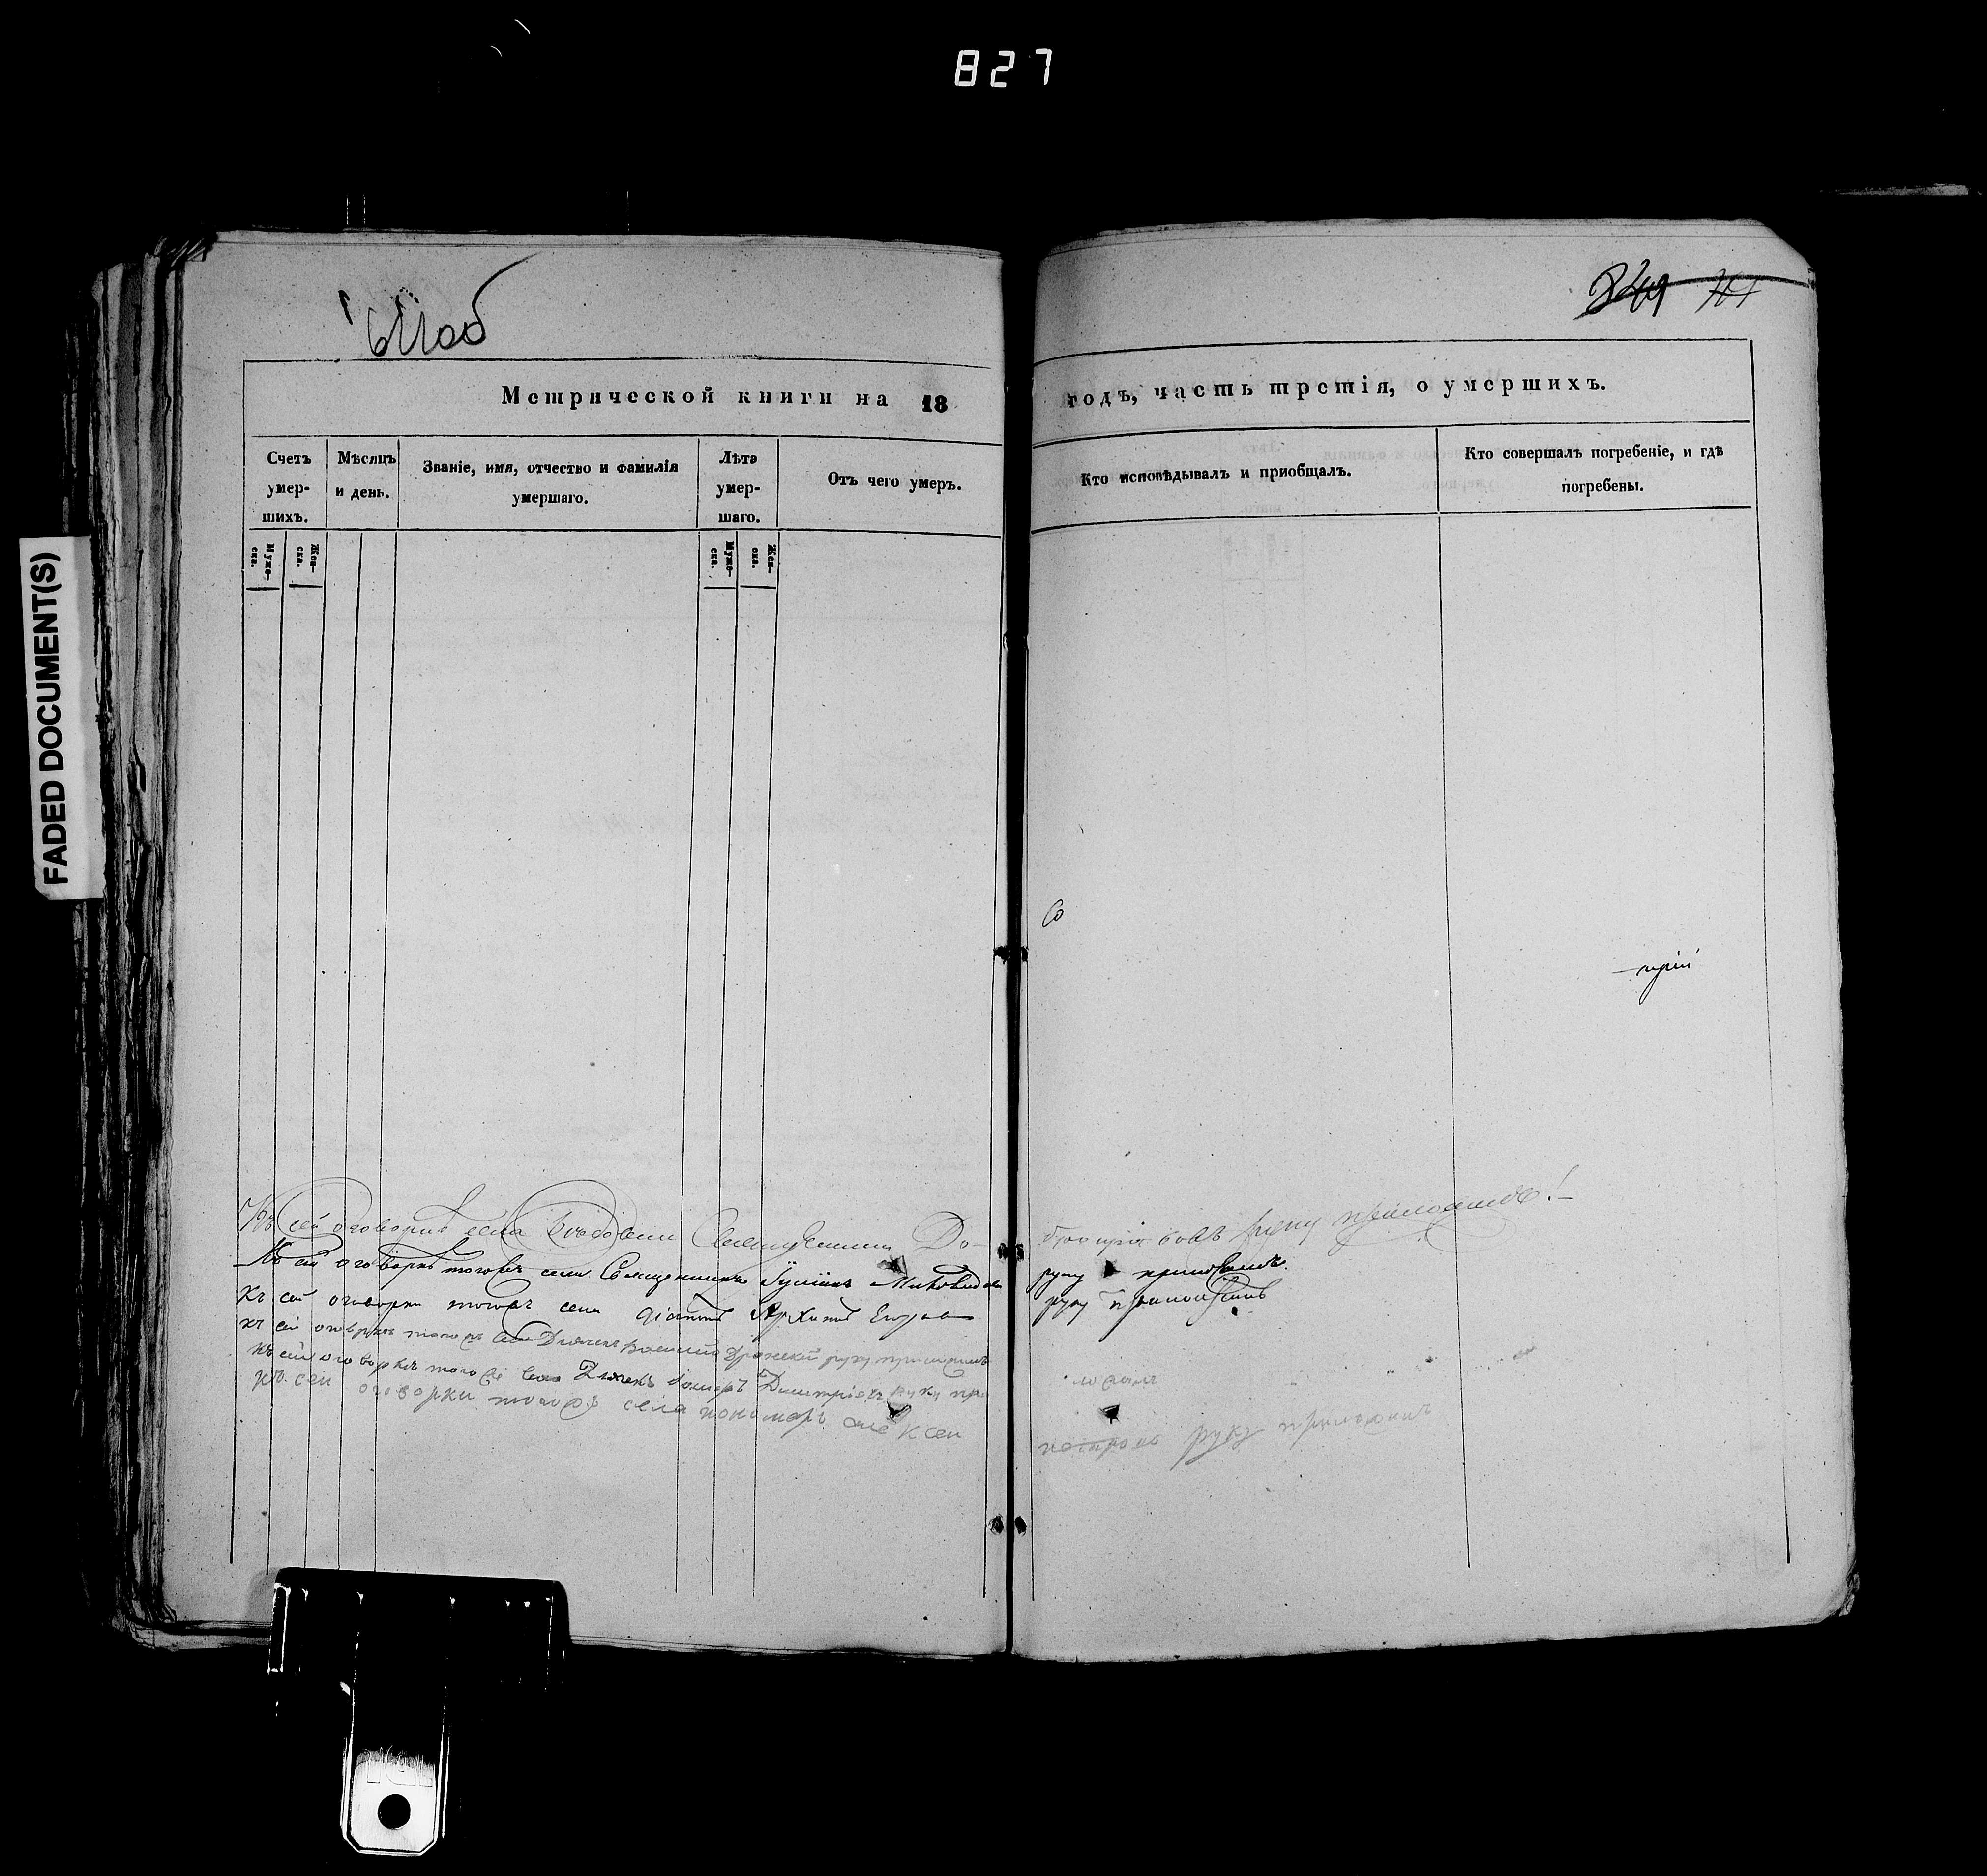 827
FADED DOCUMENT(S)
Метрической книги на 18 годъ, часть третія, о умершихъ.
Счетъ умер-
шихъ.
Мѣсяцъ и день.
Званіе, имя, отчество и фамилія
умершаго.
Лѣта умер-
шаго.
Отъ чего умеръ.
Кто исповѣдывалъ и приобщалъ.
Кто совершалъ погребеніе, и гдѣ
погребены.
Муже-
ска.
Жен-
ска.
Муже-
ска.
Жен-
ска.
Со
трій
Къ сей оговоркѣ села Священникъ До- руку приложилъ!
Къ сей оговоркѣ тогожъ села Священникъ руку приложилъ.
Къ сей оговорки тогожъ села діаконъ Архипъ Егоровъ руку приложилъ
къ сей оговоркѣ тогожъ села Дьячекъ Василій руку приложилъ
къ сей оговоркѣ тогоже села Дьячекъ Димитріевъ руку при ложилъ
къ сей оговорки тогожъ села пономарь Алексеи петровъ руку приложилъ